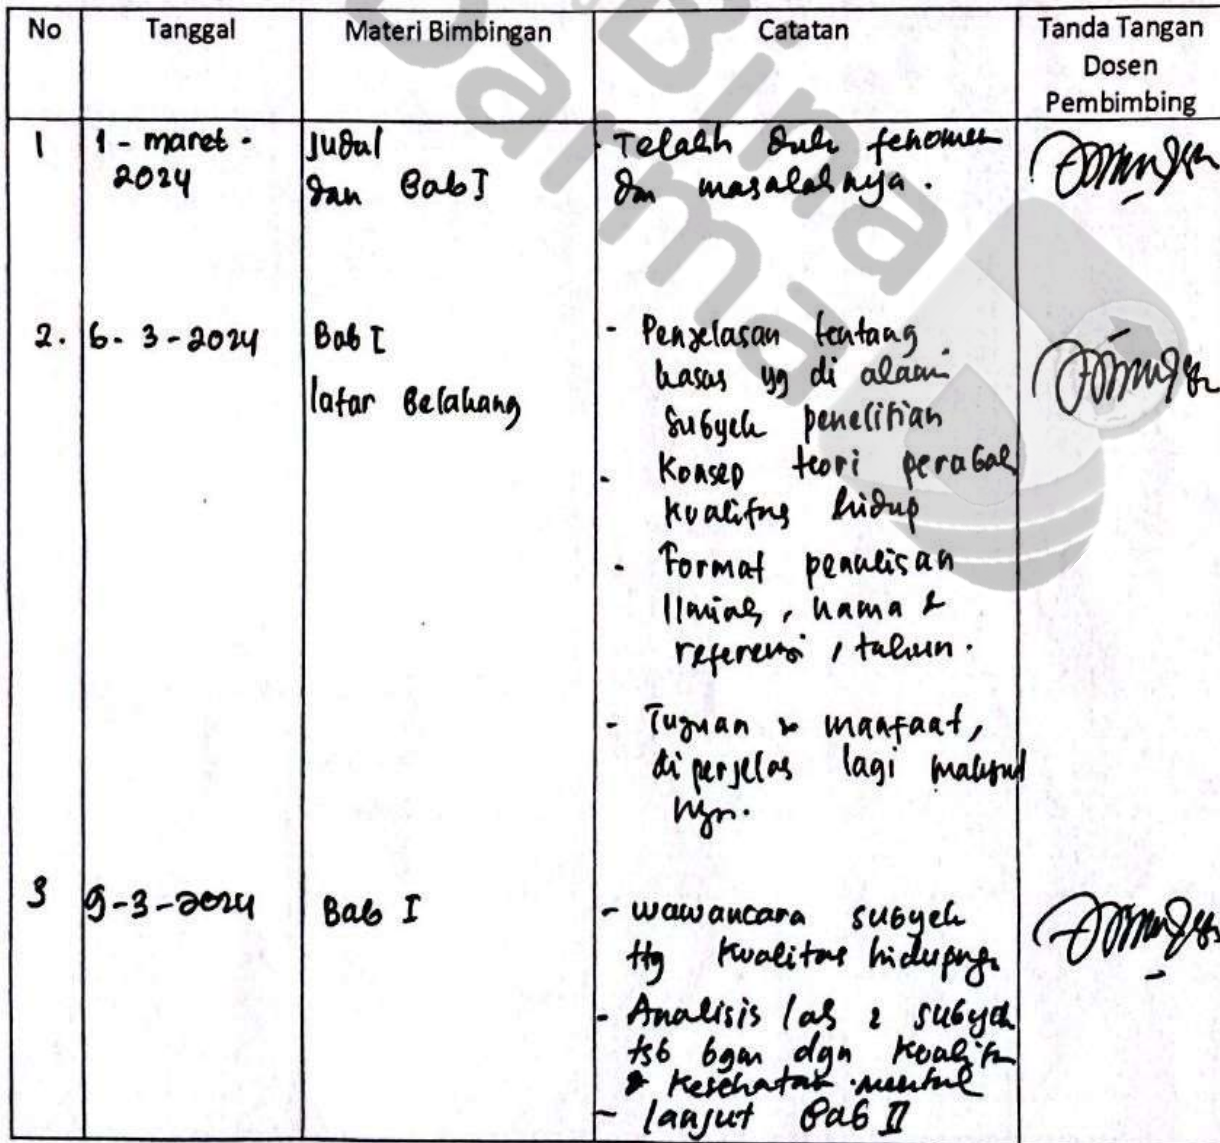 Bina
Darma
No Tanggal Materi Bimbingan Catatan Tanda Tangan
Dosen
Pembimbing
1 1 - maret - Judul Telaah dulu fenomen
2024 dan Bab I dan masalahnya.
2. 6 - 3 - 2024 Bab I - Penjelasan tentang
latar Belakang kasus yg di alami
subyek penelitian
- Konsep teori
kualitas hidup
- Format penulisan
Ilmiah, nama &
referensi, tahun.
- Tujuan & manfaat,
di perjelas lagi maksud
nya.
3 9-3-2024 Bab I - wawancara subyek
ttg kualitas hidupnya
- Analisis lah 2 subyek
tsb bgm dgn kualitas
& kesehatan mental
- lanjut Bab II